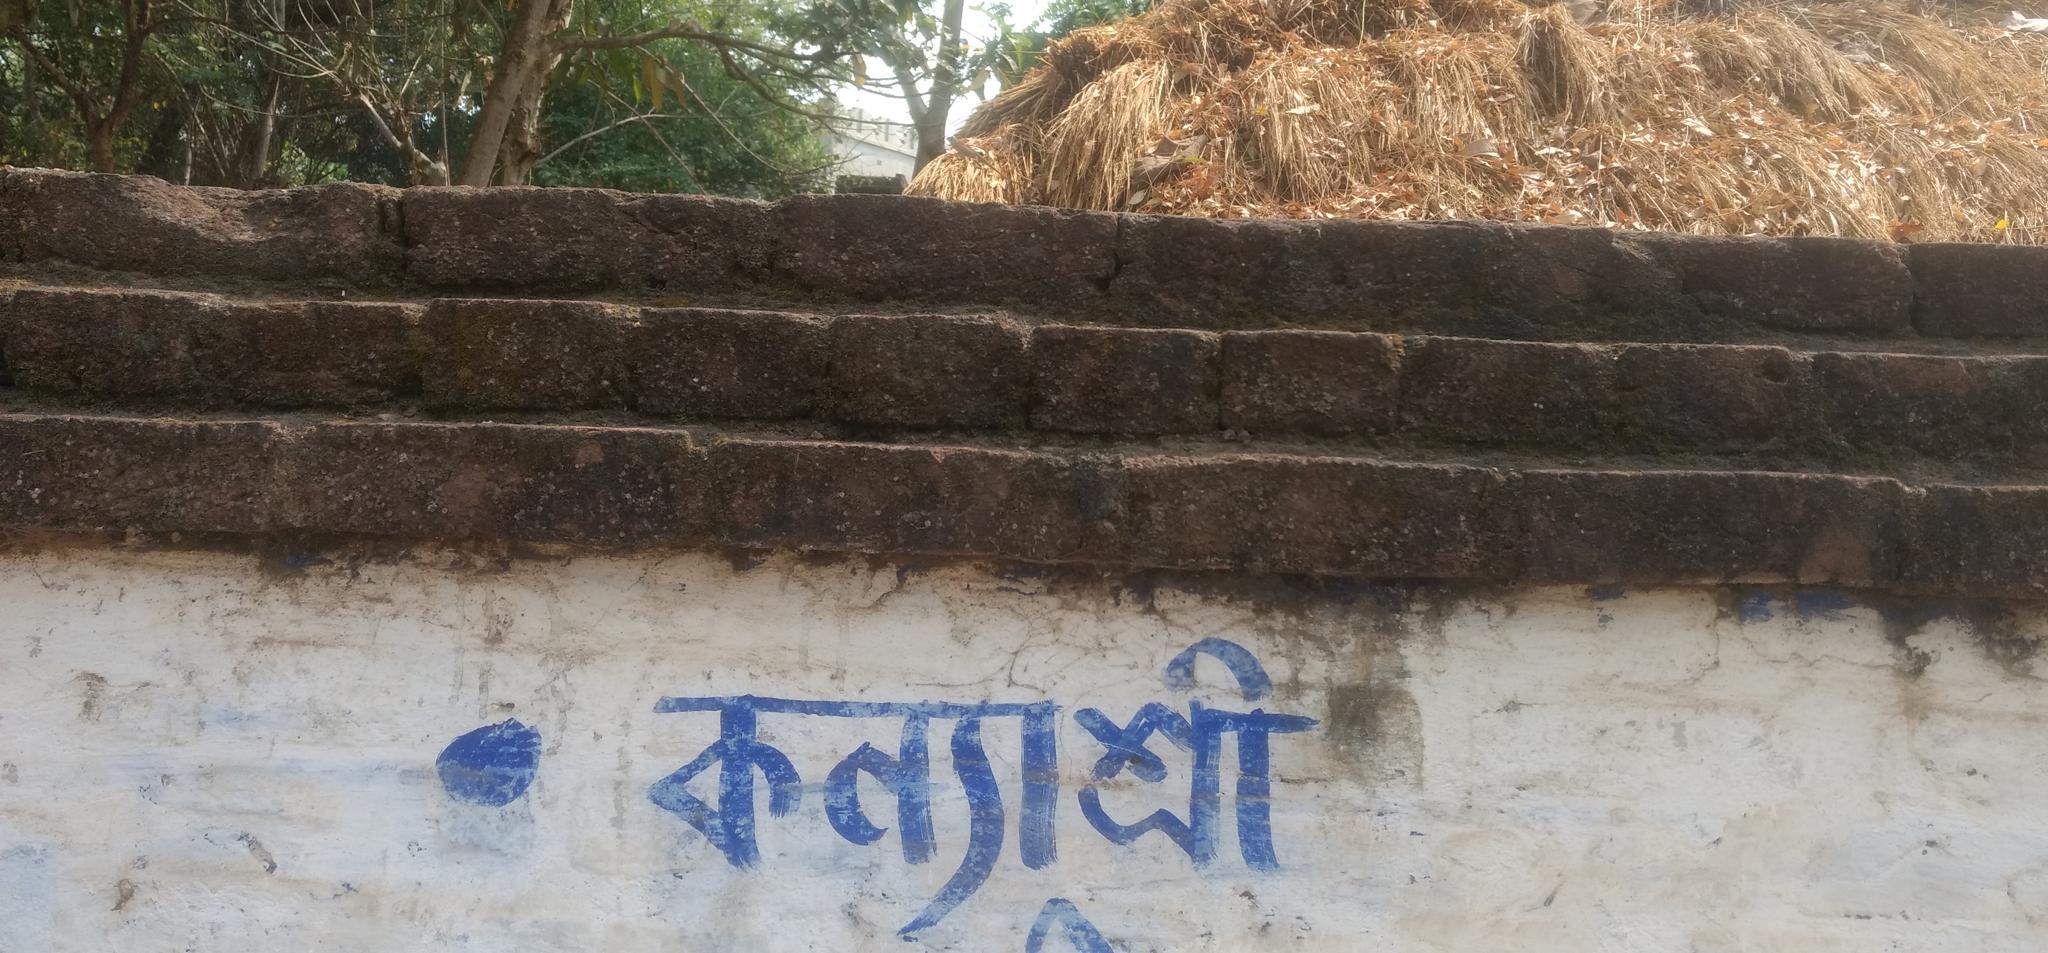 • কন্যাশ্রী